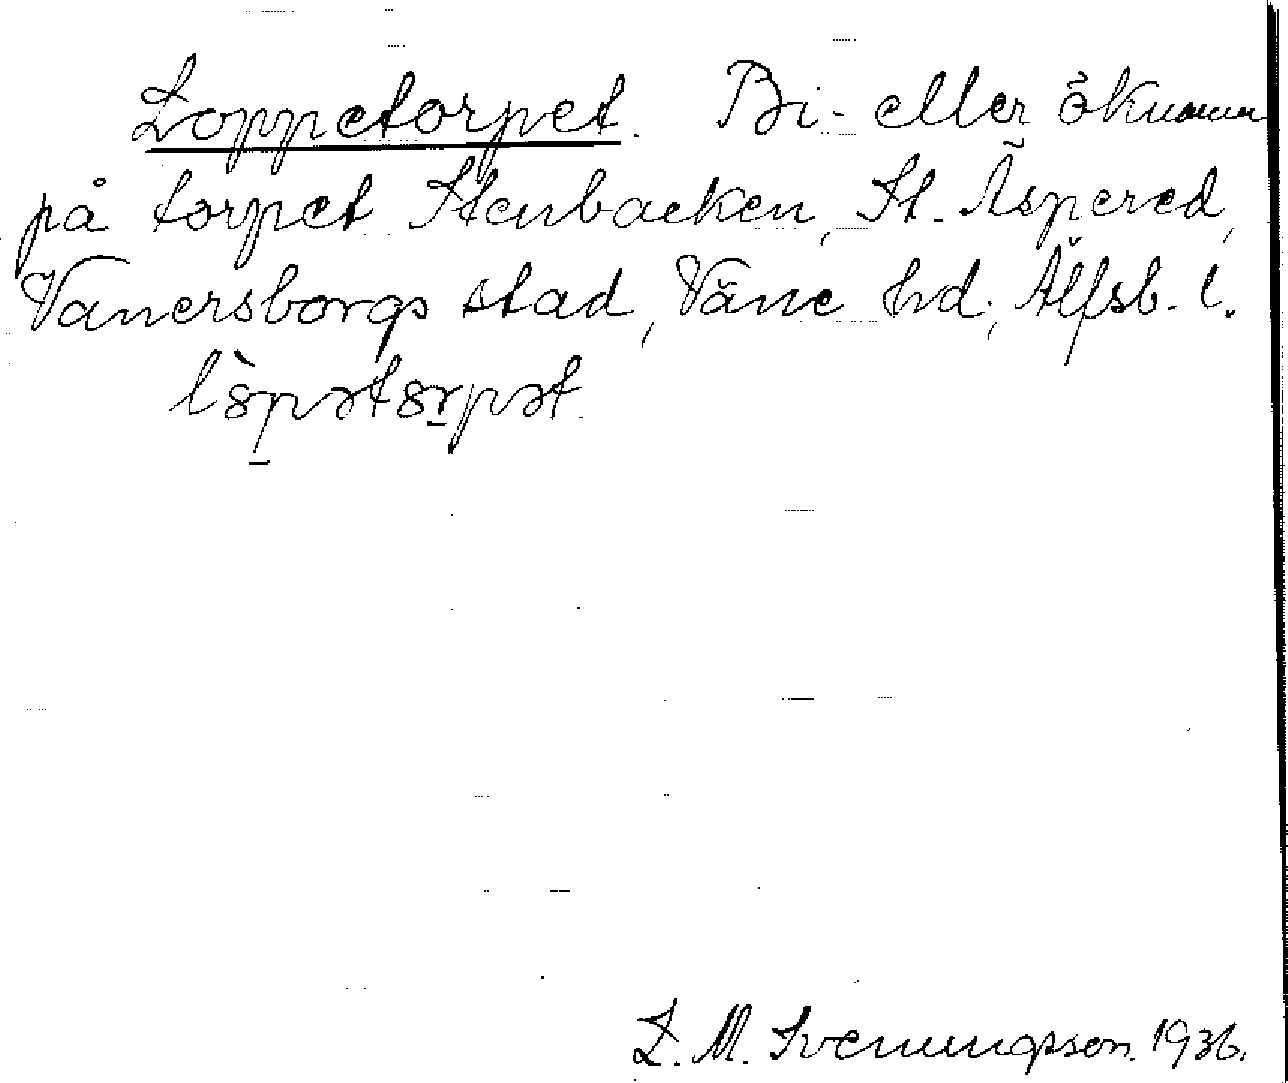 Loppetorpet. Bi- eller öknamn
på torpet Stenbacken, St. Äspered,
Vänersborgs stad, Väne hd; Älfsb. l.
lòpətorpət.
L. M. Svenungsson. 1936.